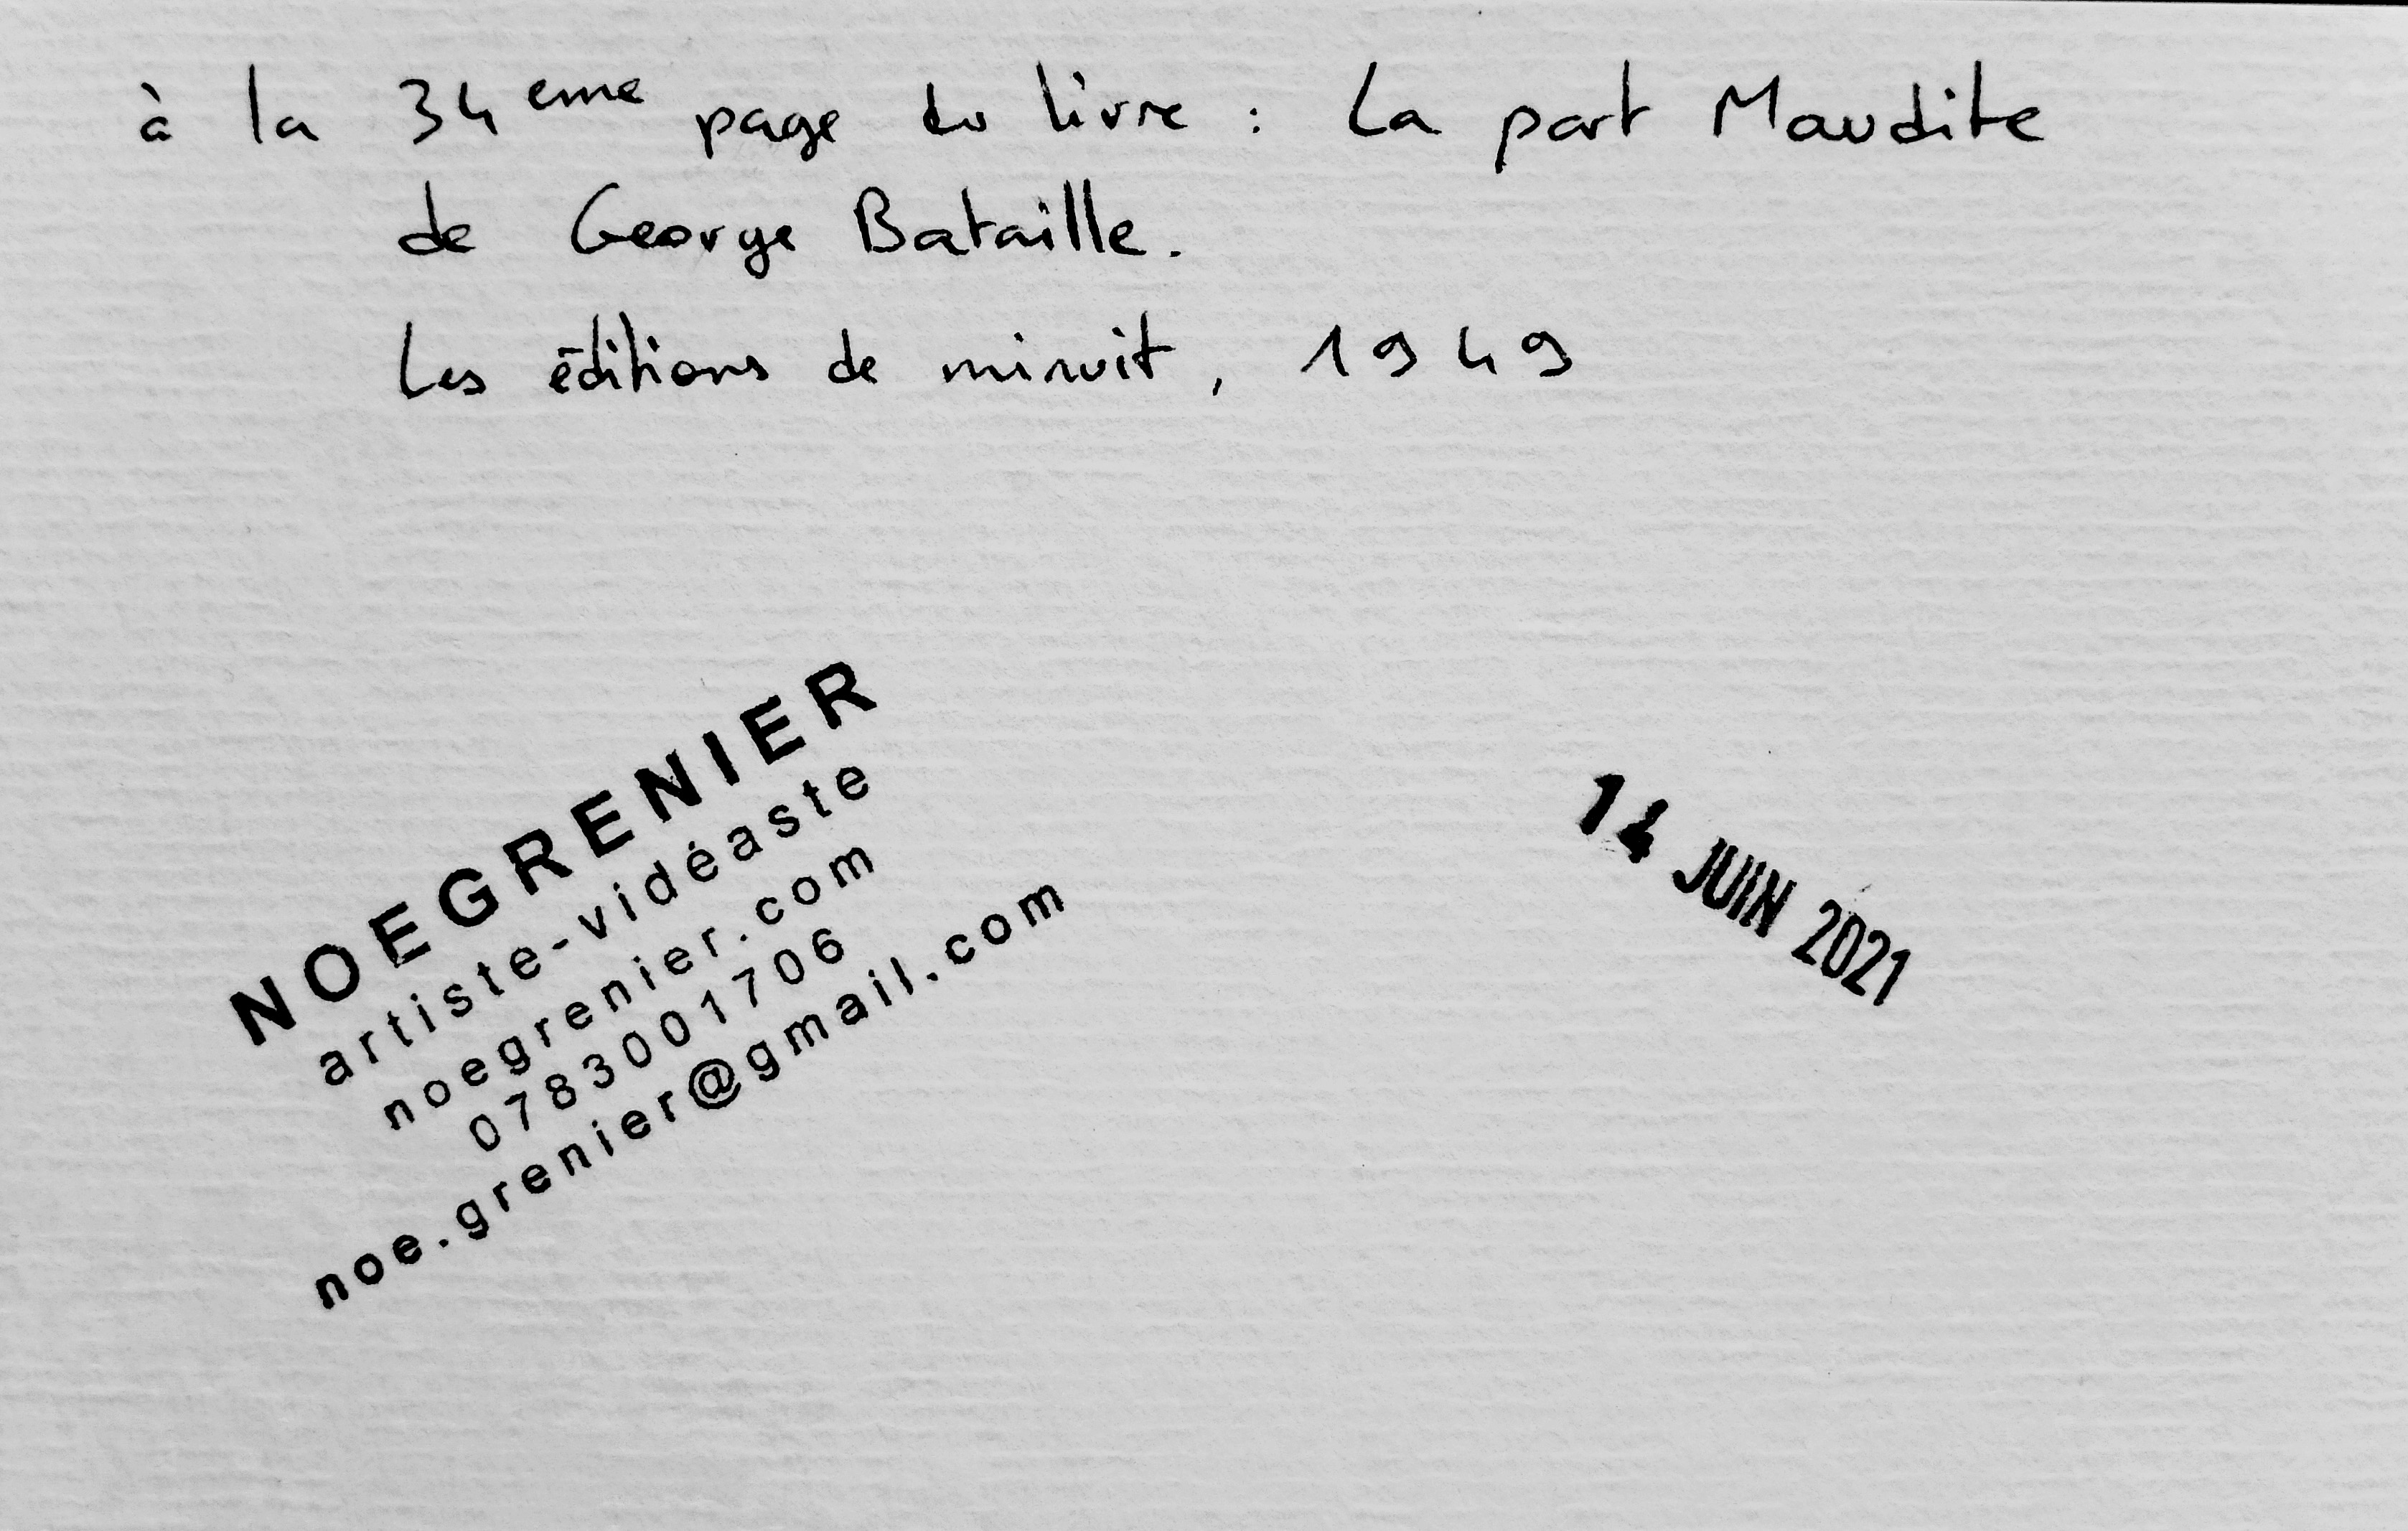 à la 34eme page du livre : La part Maudite
de George Bataille.
Les éditions de minuit, 1949
NOEGRENIER
artiste-vidéaste
noegrenier.com
0783001706
noe.grenier@gmail.com
14 JUIN 2021